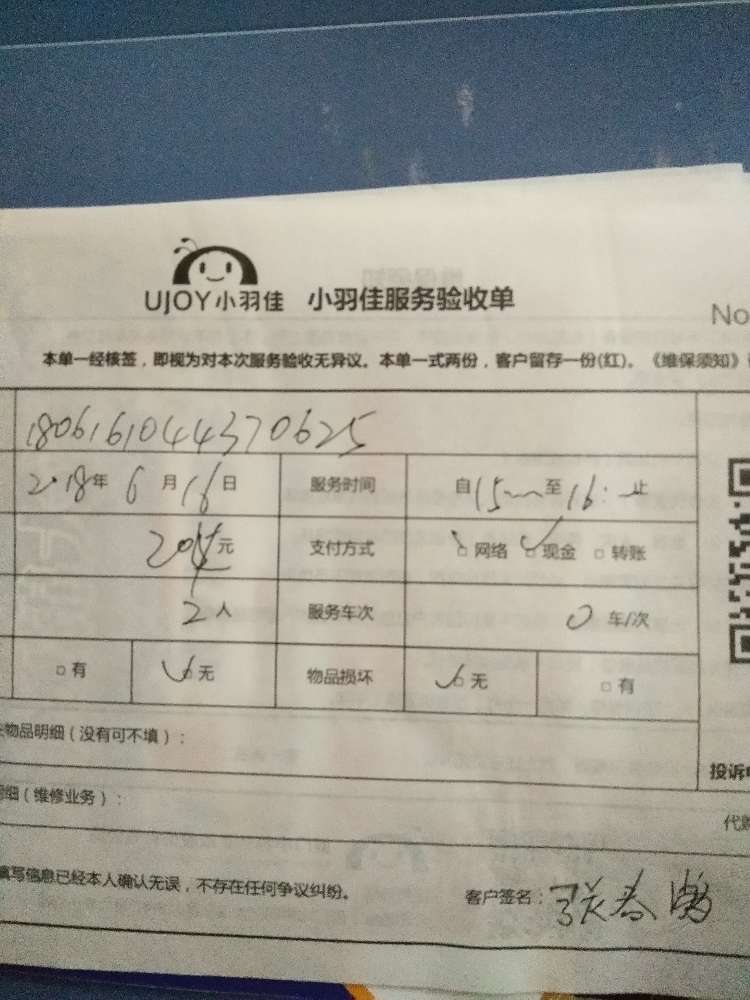 UJOY小羽佳 小羽佳服务验收单
No
本单一经核签，即视为对本次服务验收无异议。本单一式两份，客户留存一份(红)。《维保须知》
180616104370625
2018年6月16日 服务时间 自15 至16: 止
元 支付方式 网络 现金 转账
2人 服务车次 0 车/次
有 无 物品损坏 无 有
物品明细（没有可不填）：
投诉
细（维修业务）：
代
填写信息已经本人确认无误，不存在任何争议纠纷。
客户签名：张春